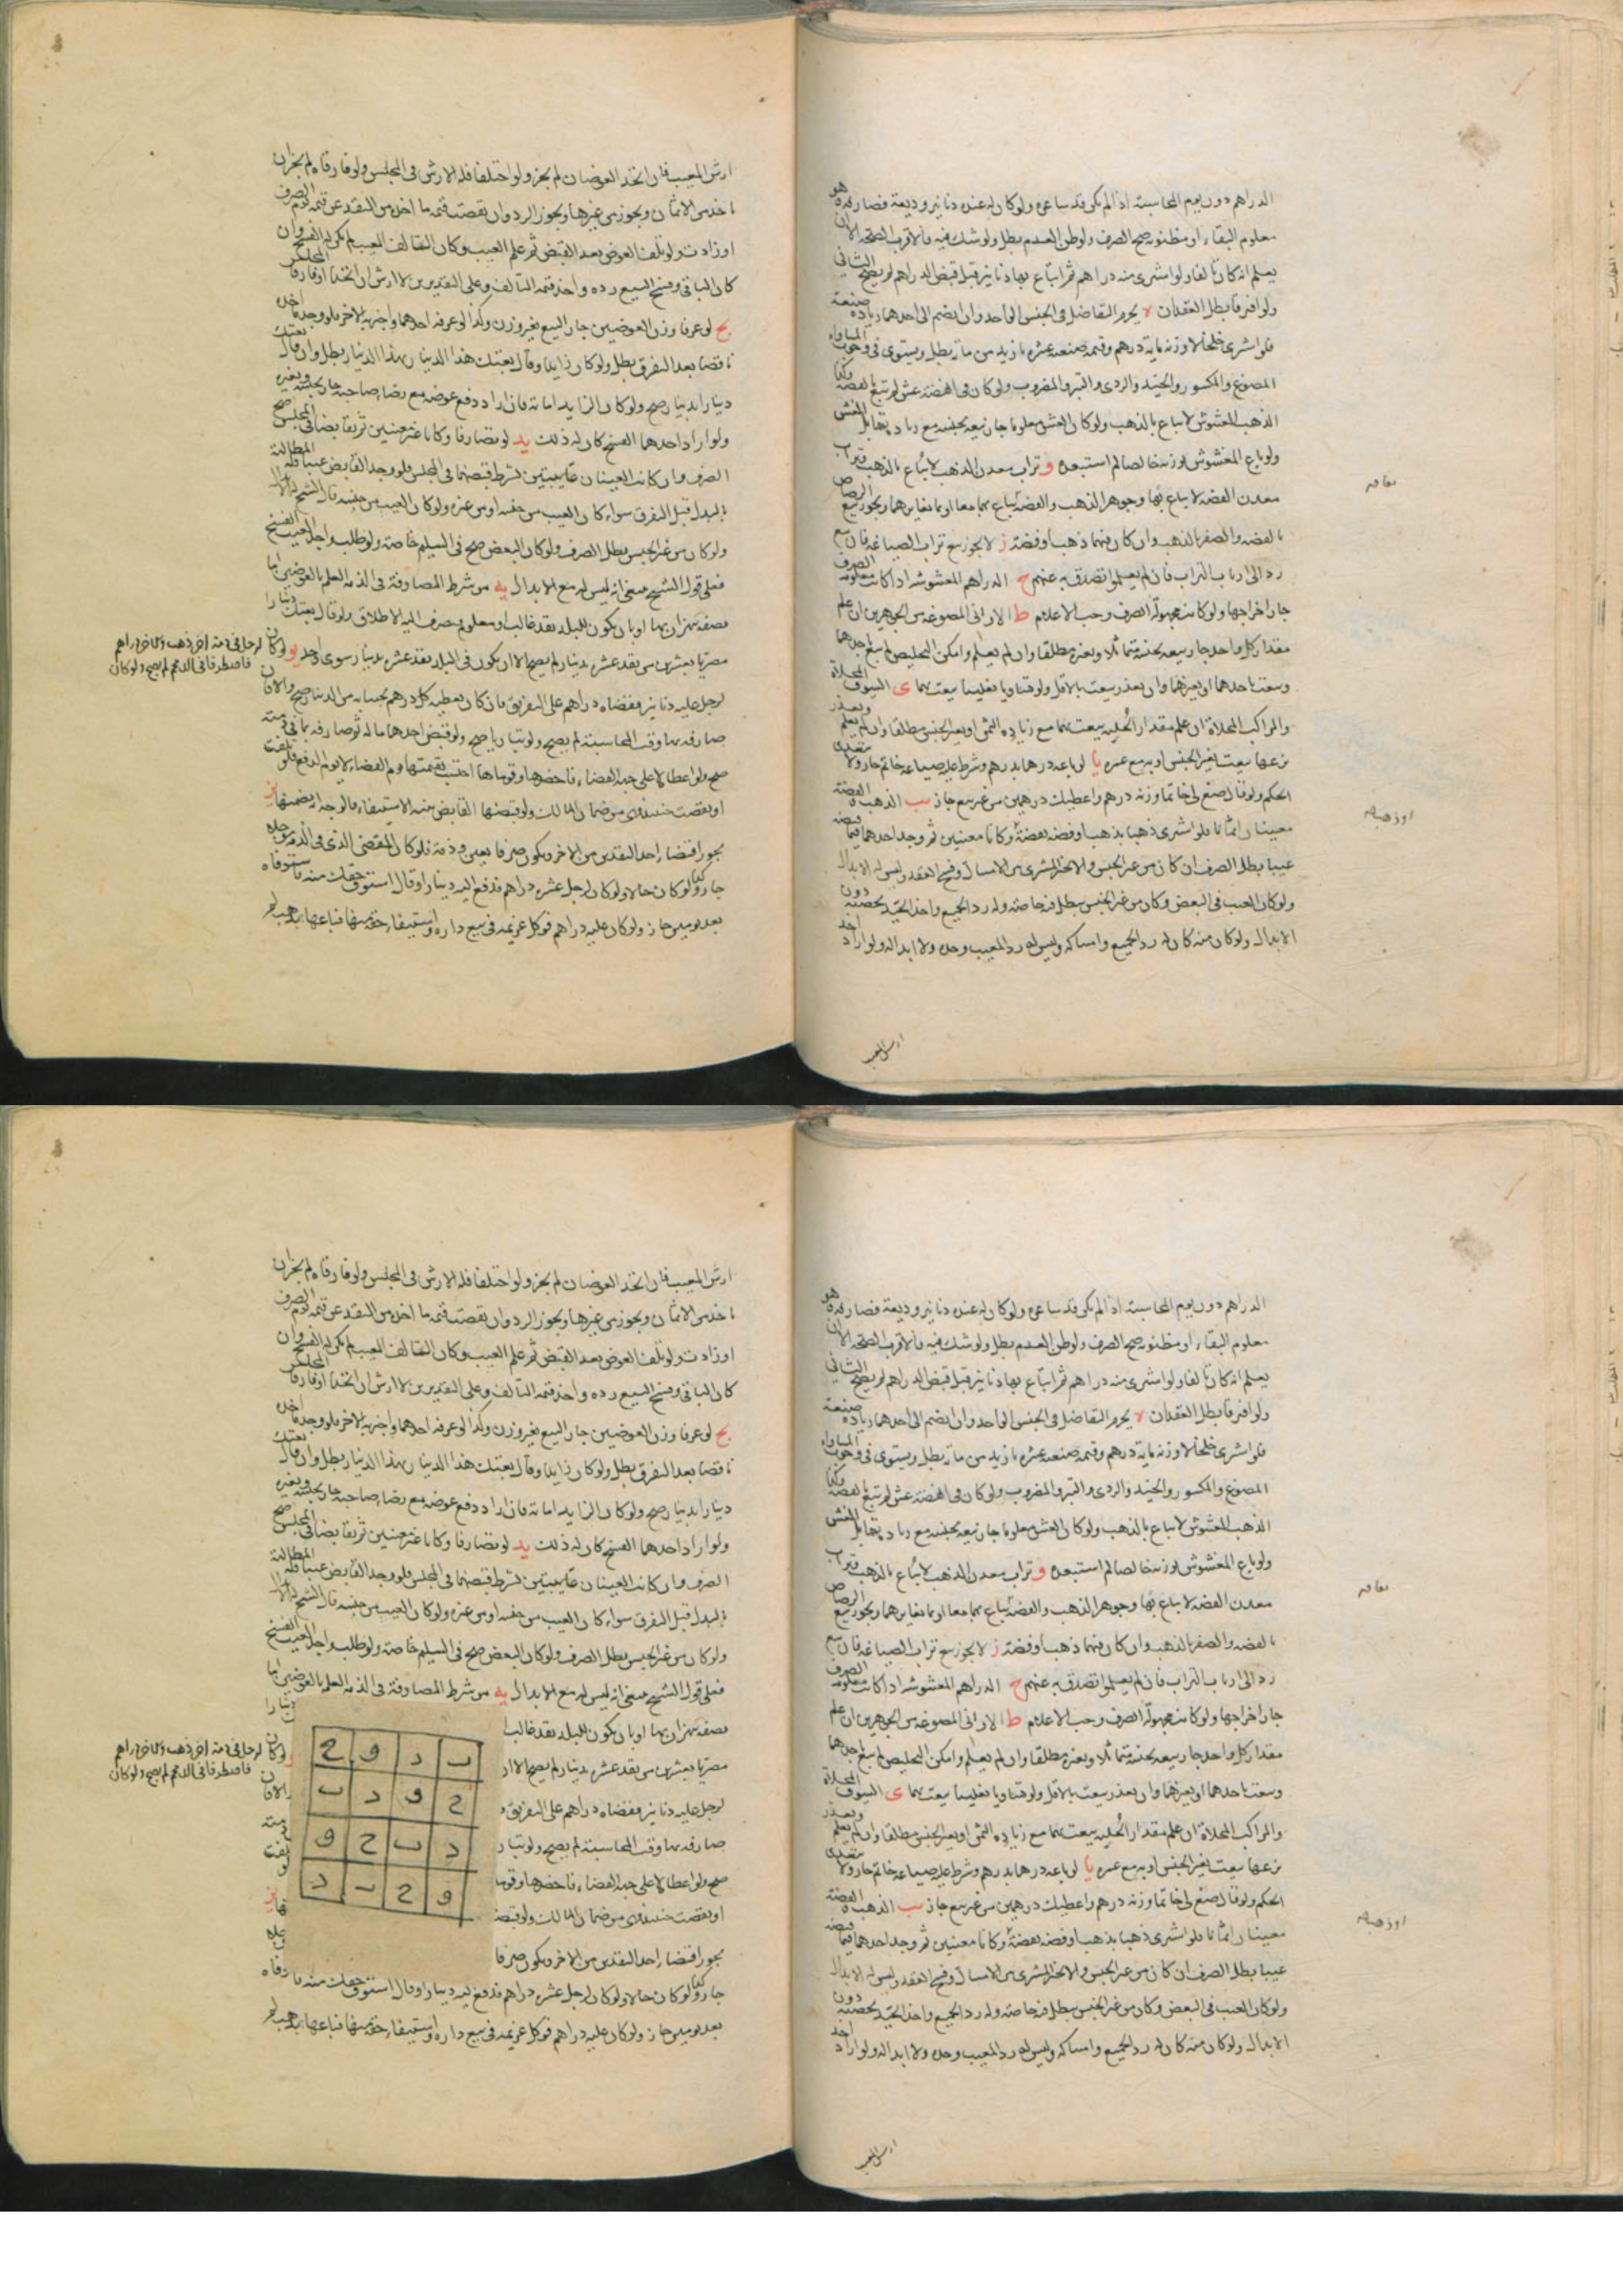 الدراهم دون يوم المحاسبة اذا لم يكن قد ساعره ولو كان له عنده دنانير وديعة فصارفه وهو
معلوم البقاء او مظنونه صح الصرف ولو ظن العدم بطل ولو شك فيه فالاقرب الصحة الا ان
يعلم انه كان تالفا ولو اشترى منه دراهم ثم ابتاع بها دنانير قبل قبض الدراهم لم يصح الثاني
ولو افترقا بطل العقدان ه يحرم التفاضل في الجنس الواحد وان انضم الى احدهما زيادة صنعة
فلو اشترى خلخالا وزنه مائة درهم وقيمة صنعته عشرة بازيد من مائة بطل ويستوي في وجوب المساواة
المصنوع والمكسور والجيد والردي والتبر والمضروب ولو كان في الفضة غش لم تبع بالفضة وكذا
الذهب المغشوش لا يباع بالذهب ولو كان الغش معلوما جاز بيعه بجنسه مع زيادة تقابل الغش
ولو باع المغشوش بوزنه خالصا لم استبعده و تراب معدن الذهب لا يباع بالذهب وتراب
معدن الفضة لا يباع بها وجوهر الذهب والفضة يباع بهما معا او بما يغايرهما ويجوز بيع الرصاص
بالفضة والصفر بالذهب وان كان فيهما ذهبا وفضة ز لا يجوز بيع تراب الصياغة فان بيع
رد الى ارباب التراب فان لم يعلموا تصدق به عنهم ح الدراهم المغشوشة اذا كانت معلومة الصرف
جاز اخراجها ولو كانت مجهولة الصرف وجب الاعلام ط الاواني المصوغة من الجوهرين ان علم
مقدار كل واحد جاز بيعه بجنسه متماثلا وبغيره مطلقا وان لم يعلم وامكن التخليص لم يبع باحدهما
وبيعت باحدهما او بغيرهما وان تعذر بيعت بالاقل ولو تساويا تغليبا بيعت بهما ى السيوف المحلاة
والمراكب المحلاة ان علم مقدار الحلية بيعت بها مع زيادة الثمن او بغير الجنس مطلقا وان لم يعلم وتعذر
نزعها بيعت بغير الجنس او به مع غيره يا لو باعه درهما بدرهم وشرط عليه صياغة خاتم جاز ولا يتعدى
الحكم ولو قال صغ لي خاتما وزنه درهم واعطيك درهمين من غير بيع جاز يب الذهب والفضة
معينان اثمانا فلو اشترى ذهبا بذهب او فضة بفضة وكانا معينين ثم وجد احدهما فيما قبضه
عيبا بطل الصرف ان كان من غير الجنس والا تخير المشتري بين الامساك وفسخ العقد وليس له الابدال
ولو كان العيب في البعض وكان من غير الجنس بطل فيه خاصة وله رد الجميع واخذ الجيد بحصته دون
الابدال ولو كان منه كان له رد الجميع وامساكه وليس له رد المعيب وحده ولا ابداله ولو اراد اخذ
ارش المعيب
ارش المعيب فان اتحد العوضان لم يجز ولو اختلفا فله الارش في المجلس ولو فارقاه لم يجز ان
ياخذ من الاثمان ويجوز من غيرها ويجوز الرد وان نقصت قيمة ما اخذ من النقد عن قيمة يوم الصرف
او زادت ولو تلف العوض بعد القبض ثم علم العيب وكان التالف المعيب لم يكن له الفسخ وان
كان الباقي وفسخ البيع رده واخذ قيمة التالف وعلى التقديرين لا ارش ان اتحدا او فارقا المجلس
يج لو عرفا وزن العوضين جاز البيع بغير وزن وكذا لو عرفه احدهما واخبر به الاخر فلو وجد ما اخذه
ناقصا بعد التفرق بطل ولو كان زايدا وقال بعتك هذا الدينار بهذا الدينار بطل وان قال بعتك
دينارا بدينار صح ولو كان الزايد امانة فان اراد دفع عوضه مع رضاء صاحبه جاز بجنسه وبغيره
ولو اراد احدهما الفسخ كان له ذلك يد لو تصارفا وكانا غير معينين ثم تقابضا في المجلس صح
الصرف وان كانت العينان غايبتين فشرط قبضهما في المجلس فلو وجد القابض عيبا فله المطالبة
بالبدل قبل التفرق سواء كان العيب من جنسه او من غيره ولو كان العيب من جنسه قال الشيخ له الابدال
ولو كان من غير الجنس بطل الصرف ولو كان البعض صح في السليم خاصة ولو طلب واجد العيب الفسخ
فعلى قول الشيخ ينبغي انه ليس له مع الابدال يه من شرط المصارفة في الذمة العلم بالعوضين اما
بصفة يتميزان بها او بان يكون للبلد نقد غالب او معلوم ينصرف اليه الاطلاق ولو قال بعتك دينارا
مصريا بعشرين من نقد عشرة بدينار لم يصح الا ان يكون في البلد نقد عشرة بدينار سوى واحد يو لو كان
لرجل في ذمة اخر ذهب وللاخر دراهم
فاصطرفا في الذمم لم يصح ولو كان
لرجل عليه دنانير فقضاه دراهم على التفريق فان كان يعطيه كل درهم بحسابه من الدينار صح والا فان
صارفه بها وقت المحاسبة لم يصح ولو تباريا صح ولو قبض احدهما ماله ثم صارفه بما في ذمته
صح ولو اعطاه لا على جهة القضاء فاحضرها وقوماها احتسب بقيمتها يوم القضاء لا يوم الدفع فلو تلفت
او نقصت حينئذ فمن ضمان المالك ولو قبضها القابض بنية الاستيفاء فالوجه انه يضمنها يز
يجوز اقتضاء احد النقدين من الاخر ويكون صرفا بعين وذمة فلو كان المقضي الذي في الذمة مؤجلا
جاز وكذا لو كان حالا ولو كان لرجل عشرة دراهم فدفع اليه دينارا وقال استوف حقك منه فاستوفاه
بعد يومين جاز ولو كان عليه دراهم فوكل غريمه في بيع داره واستيفاء حقه منها فباعها بذهب لم
ب د و ح
ح و د ب
د ب ح و
و ح ب د